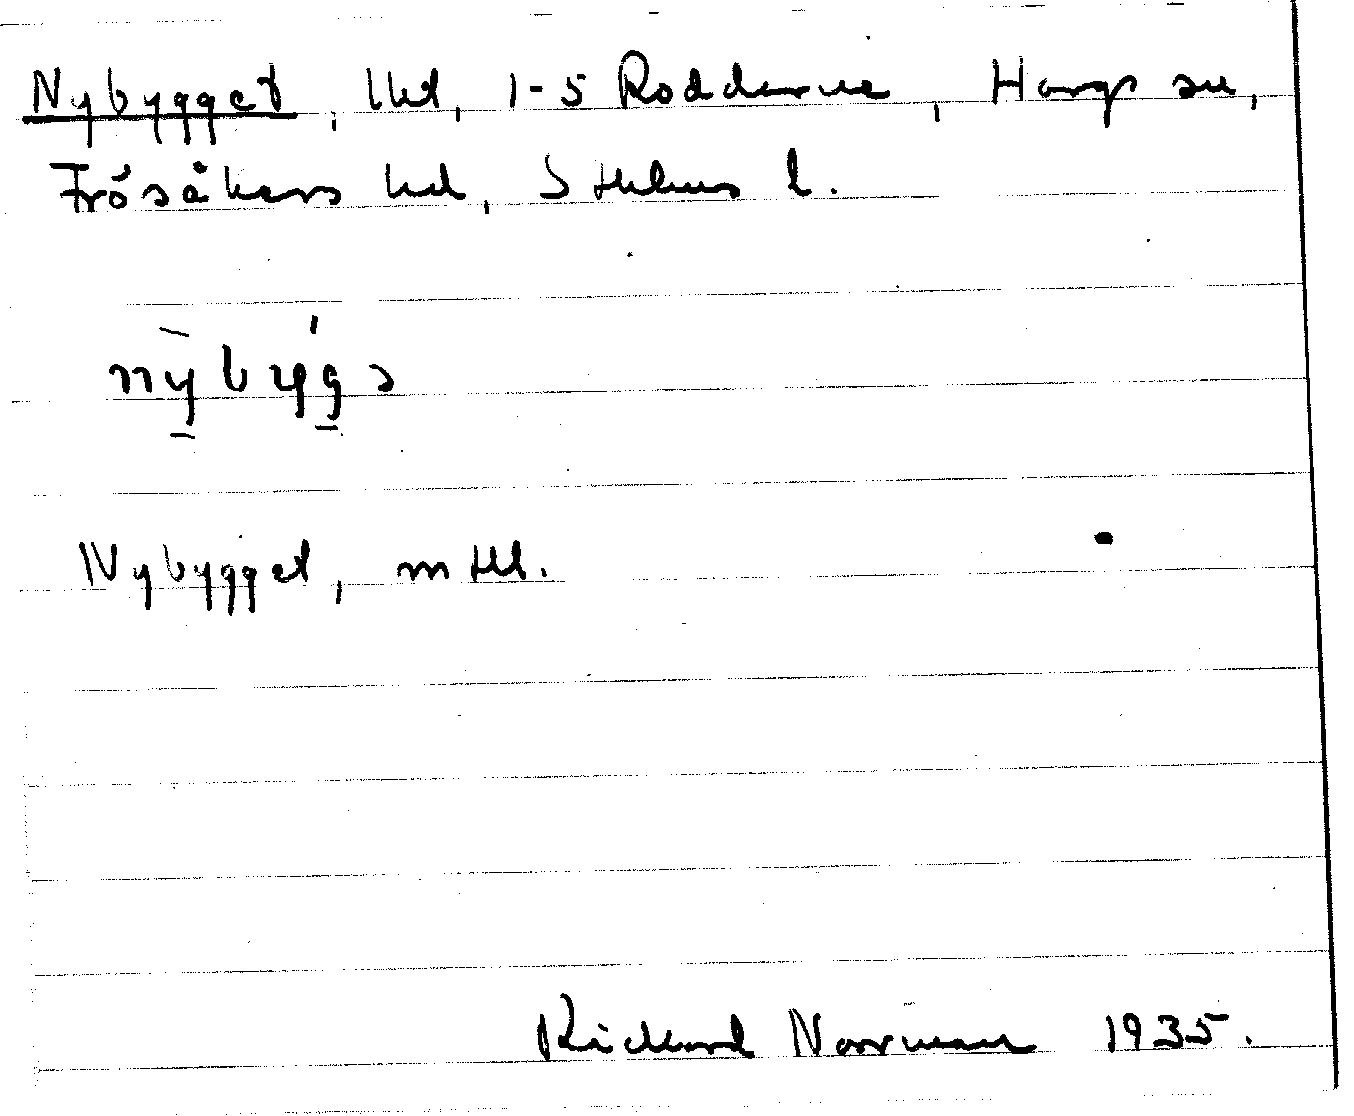 Nybygget, lht, 1-5 Rodderne, Hargs sn,
Frösåkers hd, Sthlms l.
nỳbýgə
Nybygget, mtbl.
Rickard Norrman 1935.